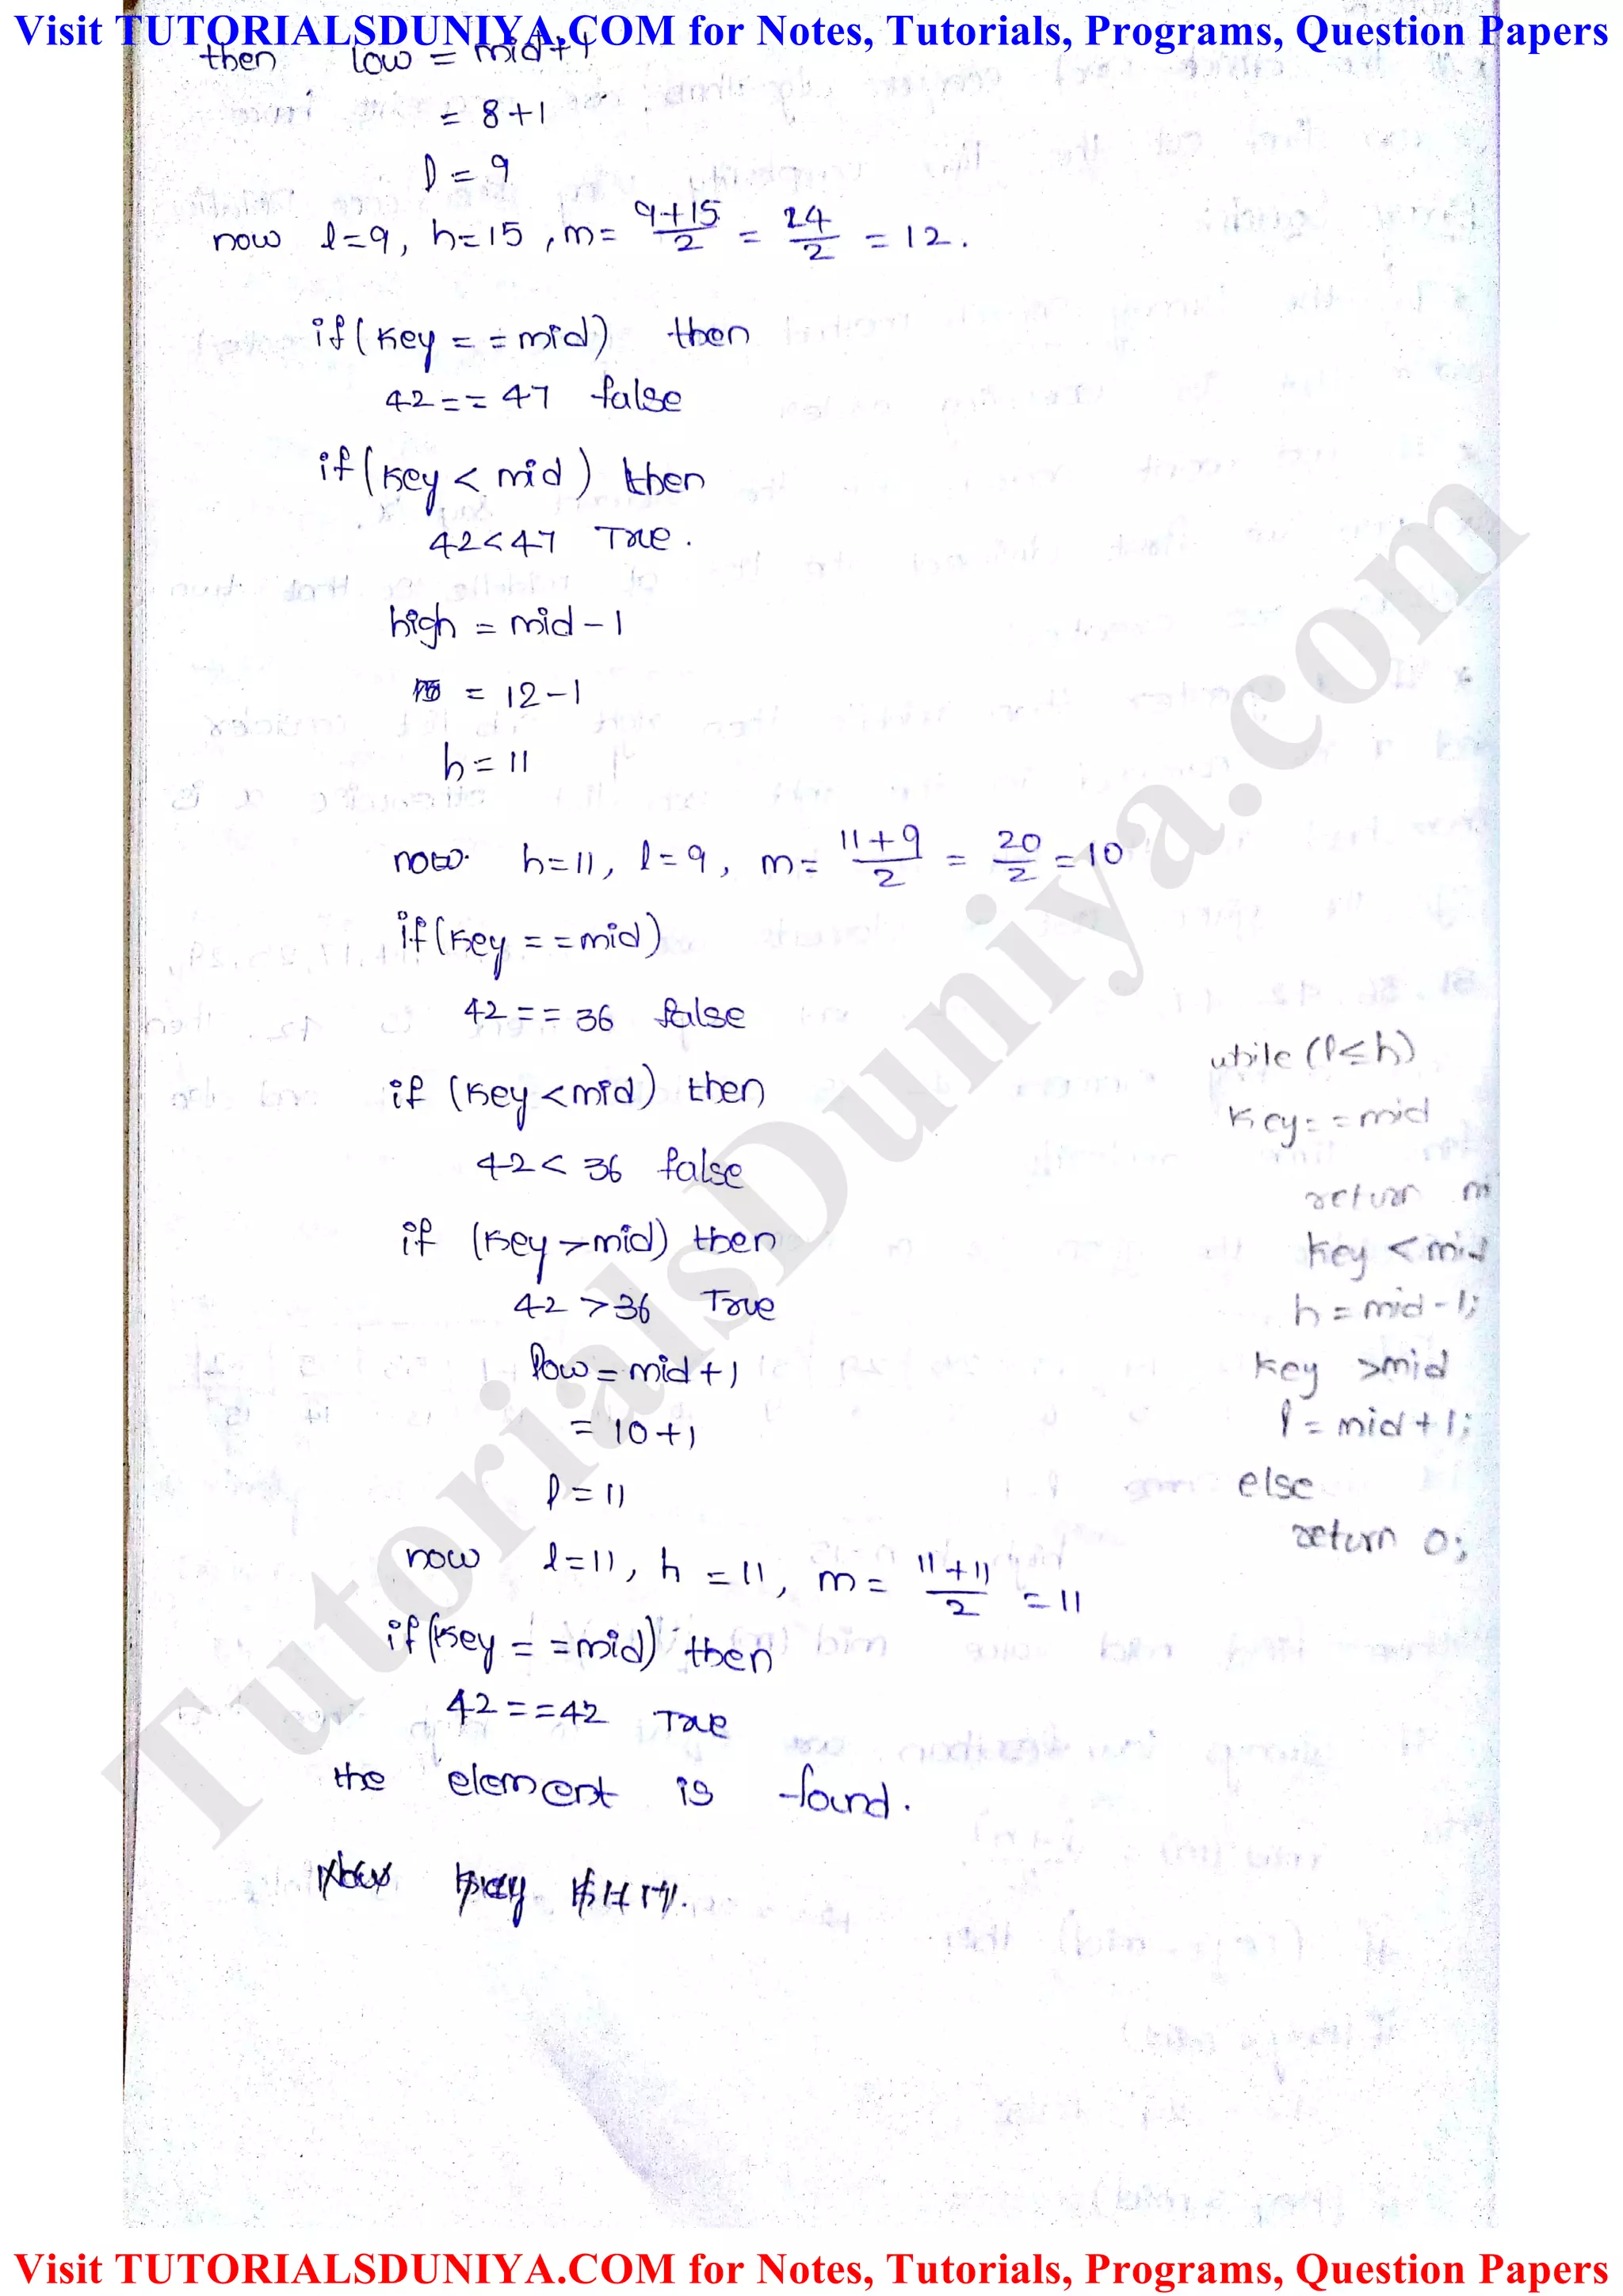 Visit TUTORIALSDUNIYA.COM for Notes, Tutorials, Programs, Question Papers
then low = mid+1
= 8+1
l = 9
now l=9, h=15, m= 9+15/2 = 24/2 = 12.
if(key == mid) then
42 == 47 false
if(key < mid) then
42<47 True.
high = mid-1
= 12-1
h = 11
now. h=11, l=9, m= 11+9/2 = 20/2 = 10
if(key == mid)
42 == 36 false
if (key <mid) then
42 < 36 false
if (key >mid) then
42 >36 True
low = mid+1
= 10+1
l = 11
now l=11, h=11, m= 11+11/2 = 11
if(key == mid) then
42 == 42 True
the element is found.
while (l≤h)
key == mid
return m
key < mid
h = mid-1;
key >mid
l = mid+1;
else
return 0;
TutorialsDuniya.com
Visit TUTORIALSDUNIYA.COM for Notes, Tutorials, Programs, Question Papers